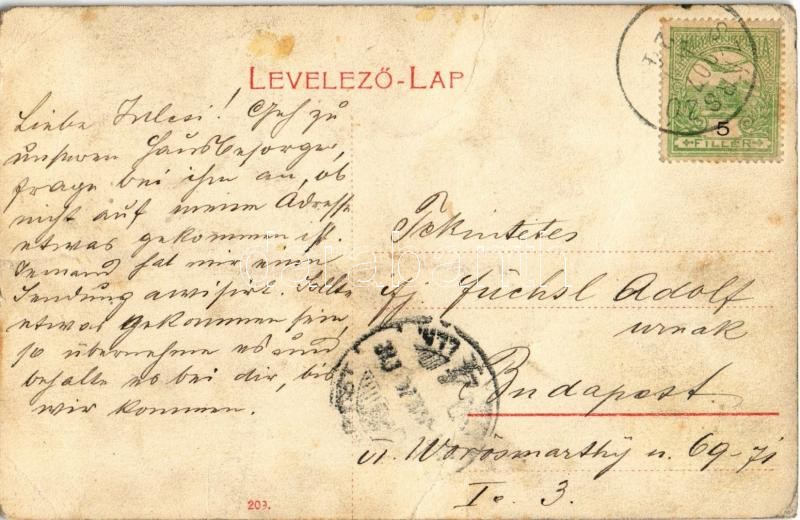 LEVELEZŐ-LAP
Liebe Julcsi! Geh zu
unseren Hausbesorger,
frage bei ihm an, ob
nicht auf meine Adresse
etwas gekommen ist.
Jemand hat mir eine
Sendung avisirt. Sollte
etwas gekommen sein,
so übernehme es und
behalte es bei dir, bis
wir kommen.
5
FILLÉR
Tekintetes
ifj. Füchsl Adolf
urnak
Budapest
VI. Vörösmarthy u. 69-71
I. 3.
203.